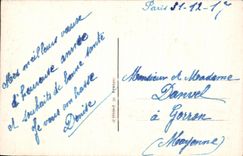 Paris 31-12-17
Mes meilleurs vœux
d'heureuse année
et souhaits de bonne santé
je vous embrasse
Denise
Monsieur et Madame
à Gorron
(Mayenne)